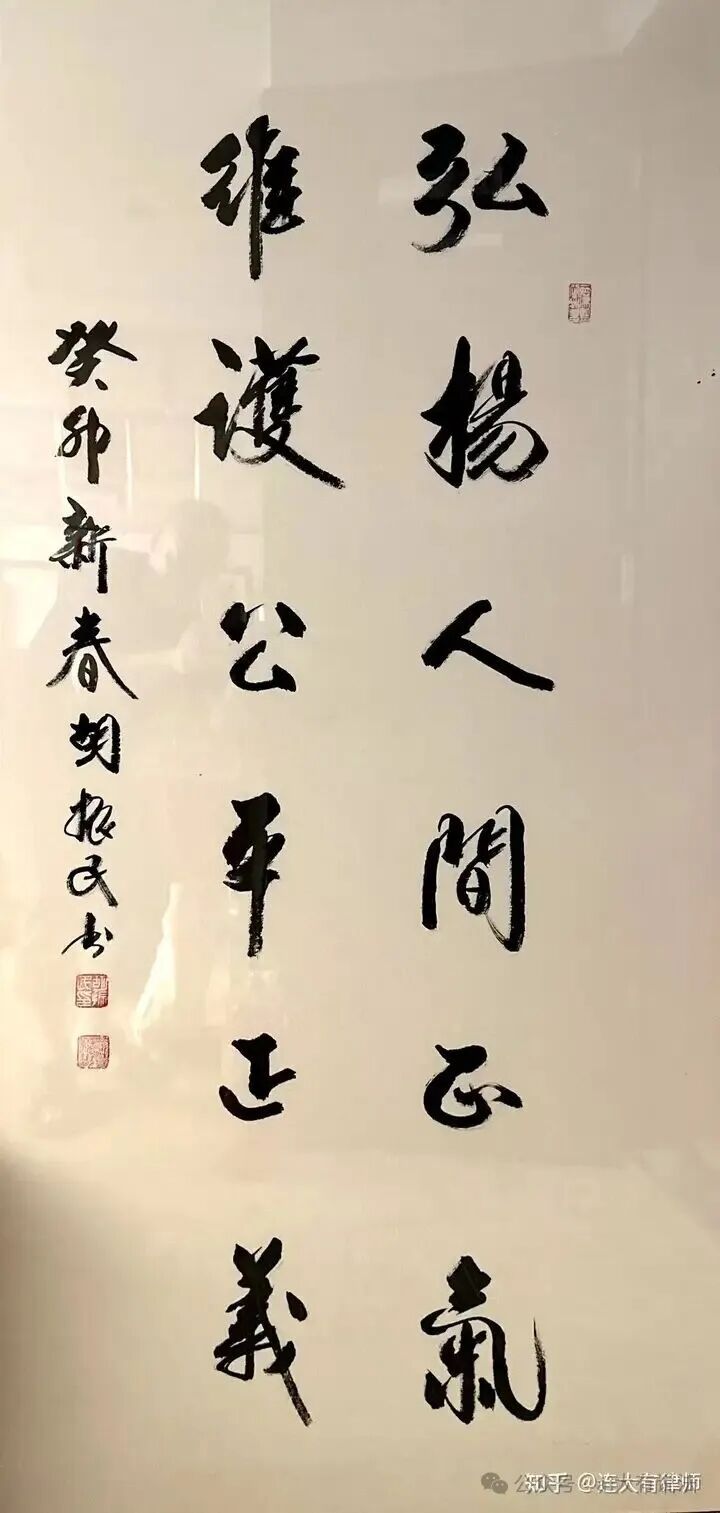 弘揚人間正氣
維護公平正義
癸卯新春胡振民书
知乎 @连大有律师